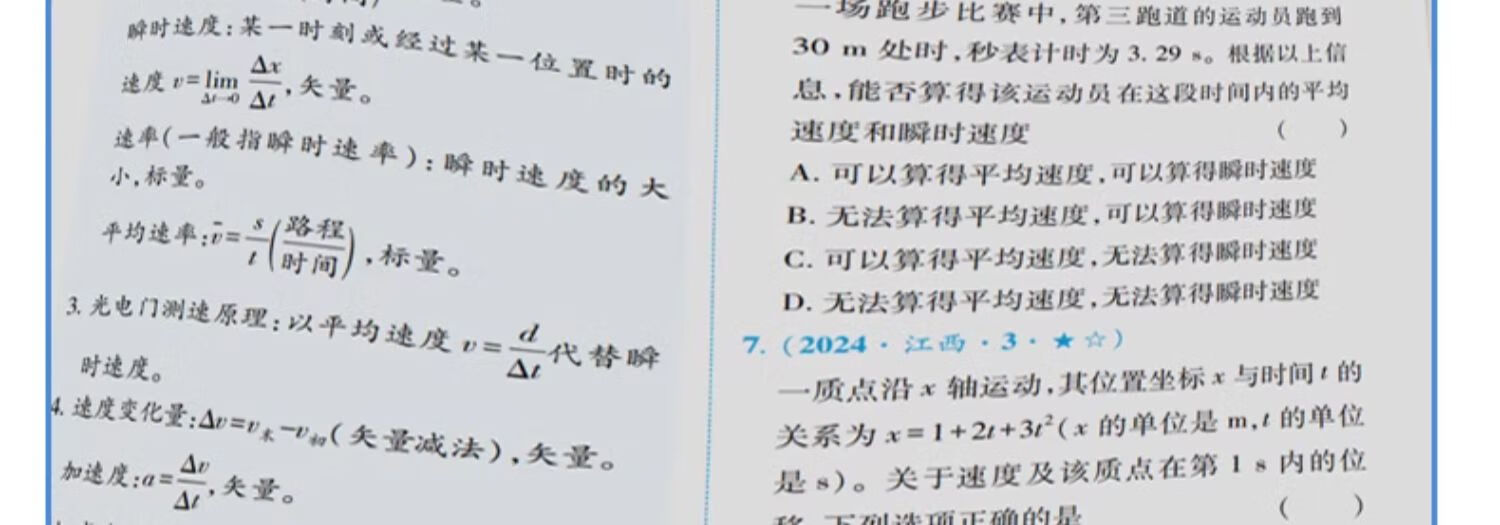 瞬时速度:某一时刻或经过某一位置时的
速度 v=lim Δt→0 Δx/Δt,矢量。
速率(一般指瞬时速率):瞬时速度的大
小,标量。
平均速率:v̄=s/t(路程/时间),标量。
3. 光电门测速原理:以平均速度 v=d/Δt代替瞬
时速度。
4. 速度变化量:Δv=v末-v初(矢量减法),矢量。
加速度:a=Δv/Δt,矢量。
一场跑步比赛中,第三跑道的运动员跑到
30 m 处时,秒表计时为 3. 29 s。根据以上信
息,能否算得该运动员在这段时间内的平均
速度和瞬时速度 ( )
A. 可以算得平均速度,可以算得瞬时速度
B. 无法算得平均速度,可以算得瞬时速度
C. 可以算得平均速度,无法算得瞬时速度
D. 无法算得平均速度,无法算得瞬时速度
7. (2024·江西·3·★☆)
一质点沿 x 轴运动,其位置坐标 x 与时间 t 的
关系为 x=1+2t+3t²(x 的单位是 m,t 的单位
是 s)。关于速度及该质点在第 1 s 内的位
移,下列选项正确的是 ( )